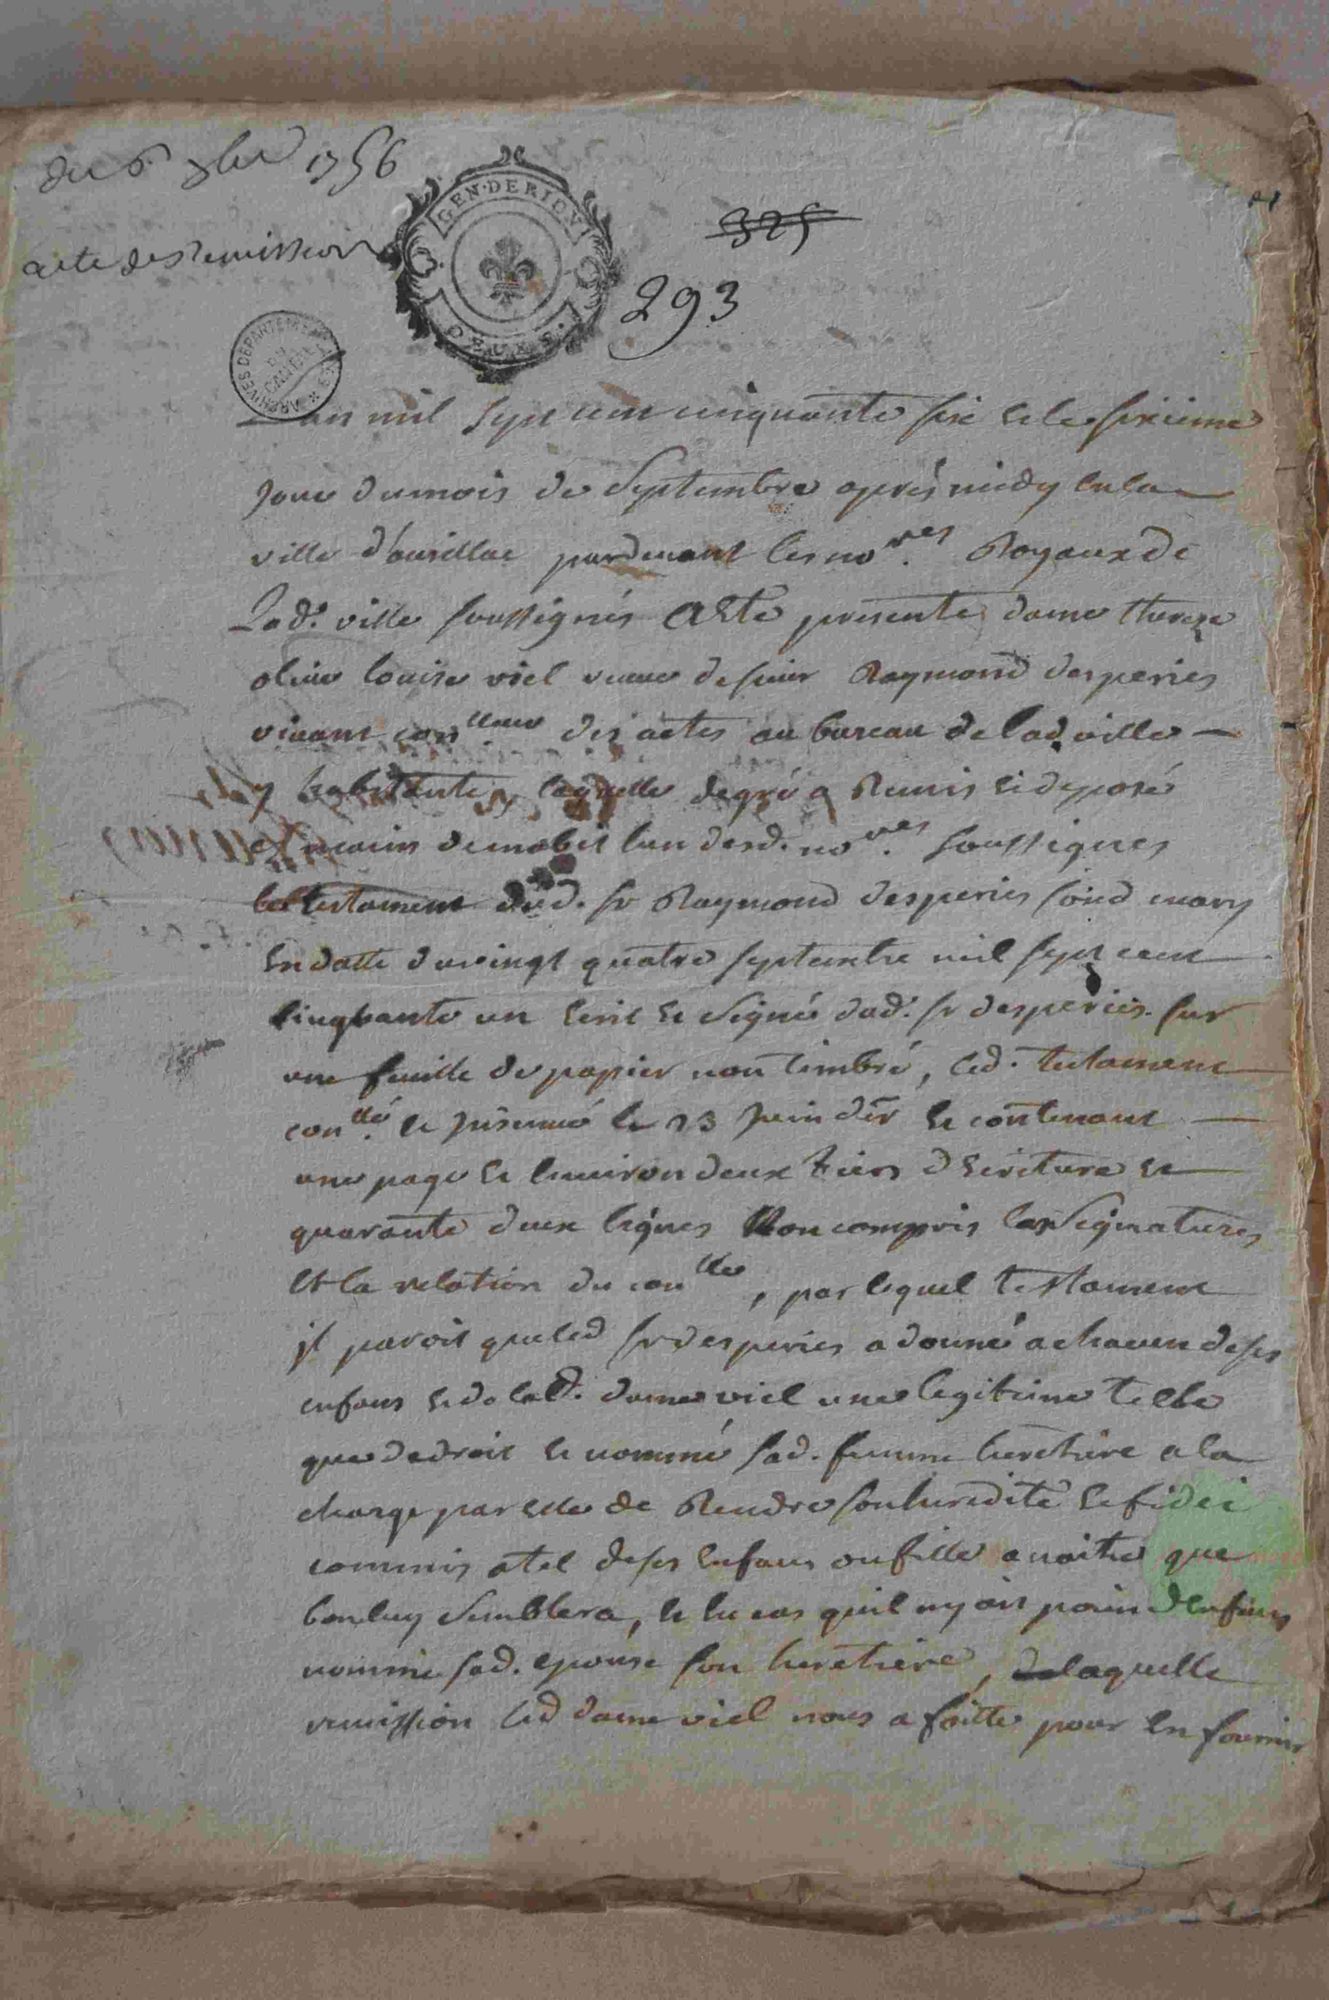 du 6 7bre 1756
acte de Remission
GEN. DE RIOM
325
293
ARCHIVES DEPARTEMENTALES
DU
CANTAL
L'an mil sept cent cinquante six et le sixieme
jour du mois de Septembre après midy en la
ville d'aurillac pardevant les no.res Royaux de
Lad. ville soussignés a Eté presente dame therese
olive louise viel veuve de sieur Raymond desperies
vivant con.lleur des actes au bureau de lad ville
y habitante, laquelle de gré a Remis et deposé
ez mains de nobit l'un desd. no.res soussignes
le testament dud. sr Raymond desperies sond mary
en datte du vingt quatre septembre mil sept cent
cinquante un Ecrit et Signé dud. sr desperies sur
une feuille de papier non timbré, led. testament
con.llé et jnsinué le 23 juin der et contenant
une page et Environ deux tiers d'Ecriture et
quarante deux lignes Non compris les Signatures
Et la relation du con.lle, par lequel testament
jl paroit que led sr desperies a donné a chacun de ses
enfans et de lad. dame viel une legitime telle
que de droit et nommé sad. femme heretiere a la
charge par elle de Rendre son heredité et fidei
commis a tel de ses Enfans ou fille a naitre que
bon luy Semblera, et En cas quil ny ait point d'Enfans
nomme sad. epouse son heretiere, de laquelle
remission lad dame viel nous a faitte pour En fournir